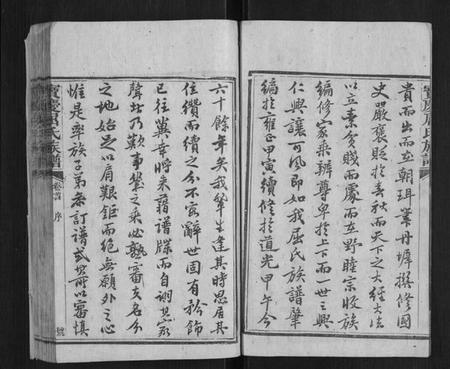 寶慶屈氏族譜
貴而出而立朝珥筆丹墀撰修國
史嚴褒貶於春秋而天下之大經大法
以立素貧賤而處而在野睦宗收族
編修家乘辨尊卑於上下而一世之興
仁興讓可風即如我屈氏族譜肇
編於雍正甲寅續修於道光甲午今
六十餘年矣我輩生逢其時思居其
任纘而續之分不容辭世固有矜飾
已往冀幸將來藉譜牒而自詡其家
聲者乃歎事發之乘必熟審夫名分
之地始之以肩艱鉅而絕無願外之心
惟是率族子弟叅訂譜或所以審慎
寶慶屈氏族譜
卷首
序
號